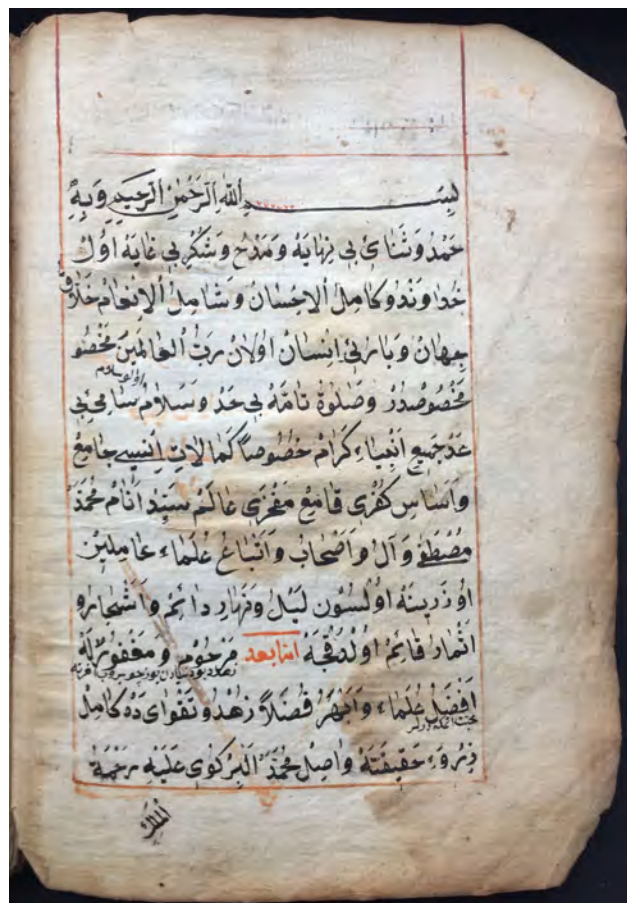 بسم الله الرحمن الرحيم وبه
حَمْدُ وَثَنَائِ بِي نِهَايَهْ وَمَدْحُ وَشُكْرِ بِي غَايَهْ اوُلْ
خُدَاوَنْدُ وكَامِلُ الاِحْسَانْ وَشَامِلُ الاِنْعَامْ خَلَّاقِ
جِهَانْ وَبَارِئِ اِنْسَانْ اوُلَانْ رَبُّ الْعَالَمِينَ مَخْصُو
مَخْصُوصْدُرْ وَصَلٰوةِ تَامَّهِ بِي حَدْ وَسَلَامِ سَامِئِ بِي
عَدْ جَمِيعِ اَنْبِيَاءِ كِرَامْ خُصُوصًا كَمَالَاتِ اِنْسِييَ جَامِعْ
وَاَسَاسِ كُفْرِي قَامِعْ مَفْخَرِي عَالَمْ سَيِّدِ اَنَامْ مُحَمَّدْ
مُصْطَفٰى وَآلُ وَاَصْحَابْ وَاَتْبَاعْ عُلَمَاءِ عَامِلِينْ
اوُزَرِينَهْ اوُلْسُونْ لَيْلُ وَنَهَارْ دَائِمْ وَاَشْجَارُ و
اَثْمَارْ قَائِمْ اوُلْدُقْجَهْ اما بعد مَرْحُومْ وَمَغْفُورٌ لَهُ
اَفْضَلِ عُلَمَاءِ وَاَبْهَرُ فُضَلَا زُهْدُ وتَقْوَاى دَهْ كَامِلْ
ذِرْوَءِ حَقِيقَتَهْ وَاصِلْ مُحَمَّدْ اَلْبِرْكَوِى عَلَيْهِ رَحْمَةُ
الملك